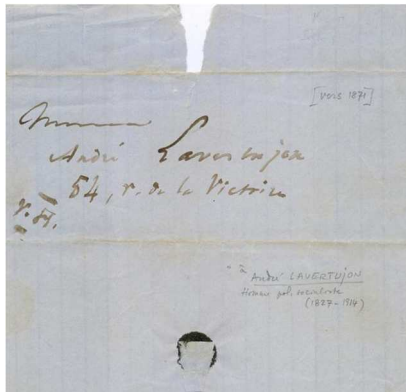 [vers 1871]
Monsieur
André Lavertujon
54, r. de la Victoire
André LAVERTUJON
Homme pol.
(1827-1914)